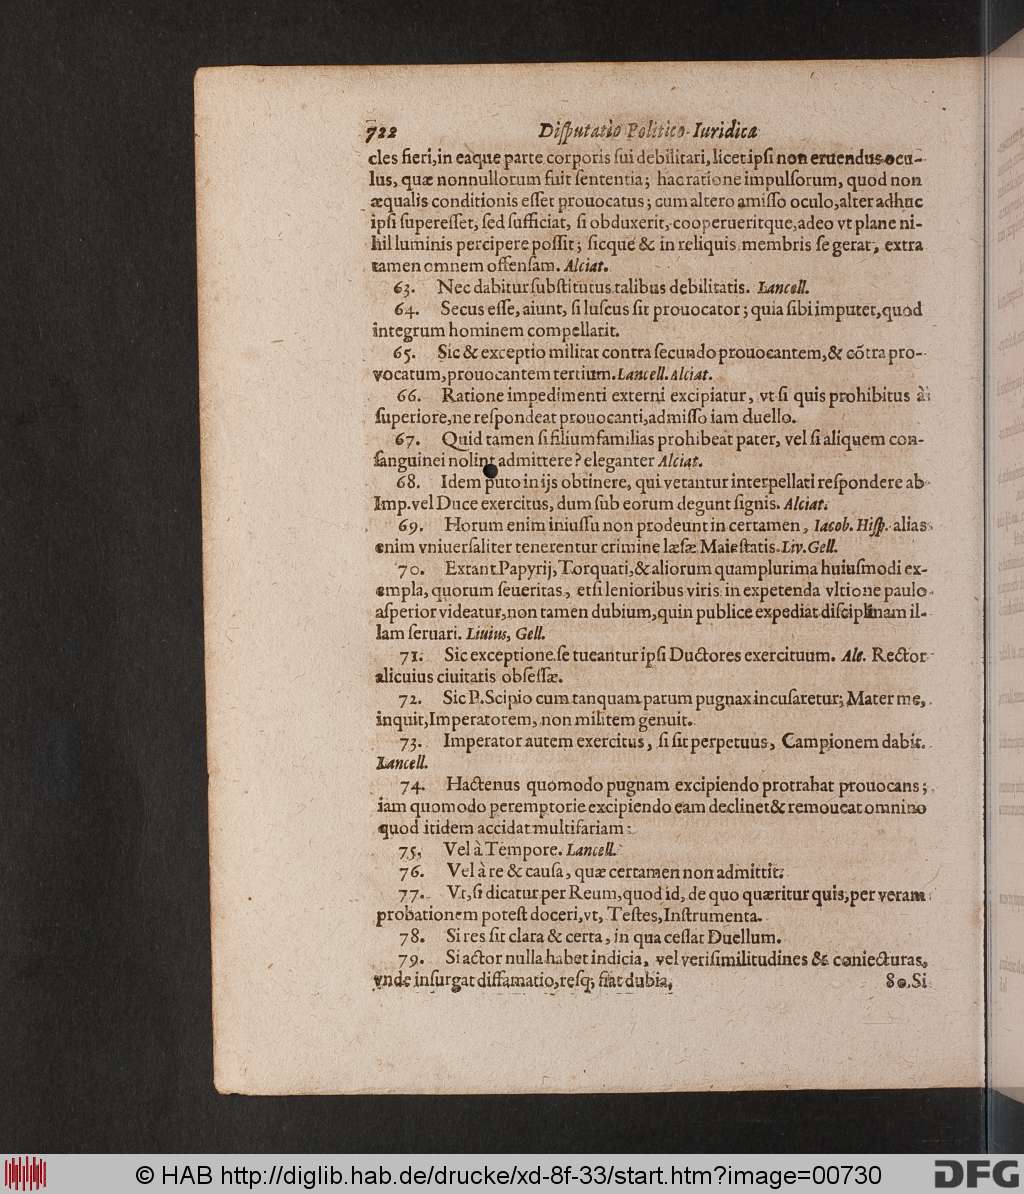 722 Diſputatio Politico-Iuridica
cles fieri, in eaque parte corporis ſui debilitari, licet ipſi non eruendus ocu-
lus, quæ nonnullorum fuit ſententia; hac ratione impulſorum, quod non
æqualis conditionis eſſet prouocatus; cum altero amiſſo oculo, alter adhuc
ipſi ſupereſſet, ſed ſufficiat, ſi obduxerit, cooperueritque, adeo vt plane ni-
hil luminis percipere poſſit; ſicque & in reliquis membris ſe gerat, extra
tamen omnem offenſam. Alciat.
63. Nec dabitur ſubſtitutus talibus debilitatis. Lancell.
64. Secus eſſe, aiunt, ſi luſcus ſit prouocator; quia ſibi imputet, quod
integrum hominem compellarit.
65. Sic & exceptio militat contra ſecundo prouocantem, & cõtra pro-
vocatum, prouocantem tertium. Lancell. Alciat.
66. Ratione impedimenti externi excipiatur, vt ſi quis prohibitus à
ſuperiore, ne reſpondeat prouocanti, admiſſo iam duello.
67. Quid tamen ſi filiumfamilias prohibeat pater, vel ſi aliquem con-
ſanguinei nolint admittere? eleganter Alciat.
68. Idem puto in ijs obtinere, qui vetantur interpellati reſpondere ab
Imp. vel Duce exercitus, dum ſub eorum degunt ſignis. Alciat.
69. Horum enim iniuſſu non prodeunt in certamen, Iacob. Hiſp. alias
enim vniuerſaliter tenerentur crimine læſæ Maieſtatis. Liv. Gell.
70. Extant Papyrij, Torquati, & aliorum quamplurima huiuſmodi ex-
empla, quorum ſeueritas, etſi lenioribus viris in expetenda vltione paulo
aſperior videatur, non tamen dubium, quin publice expediat diſciplinam il-
lam ſeruari. Liuius, Gell.
71. Sic exceptione ſe tueantur ipſi Ductores exercituum. Ale. Rector
alicuius ciuitatis obſeſſæ.
72. Sic P. Scipio cum tanquam parum pugnax incuſaretur; Mater me,
inquit, Imperatorem, non militem genuit.
73. Imperator autem exercitus, ſi ſit perpetuus, Campionem dabit.
Lancell.
74. Hactenus quomodo pugnam excipiendo protrahat prouocans;
iam quomodo peremptorie excipiendo eam declinet & remoueat omnino
quod itidem accidat multifariam:
75. Vel à Tempore. Lancell.
76. Vel à re & cauſa, quæ certamen non admittit.
77. Vt, ſi dicatur per Reum, quod id, de quo quæritur quis, per veram
probationem poteſt doceri, vt, Teſtes, Inſtrumenta.
78. Si res ſit clara & certa, in qua ceſſat Duellum.
79. Si actor nulla habet indicia, vel veriſimilitudines & coniecturas,
vnde inſurgat diffamatio, reſq; fiat dubia, 80. Si
© HAB http://diglib.hab.de/drucke/xd-8f-33/start.htm?image=00730 DFG